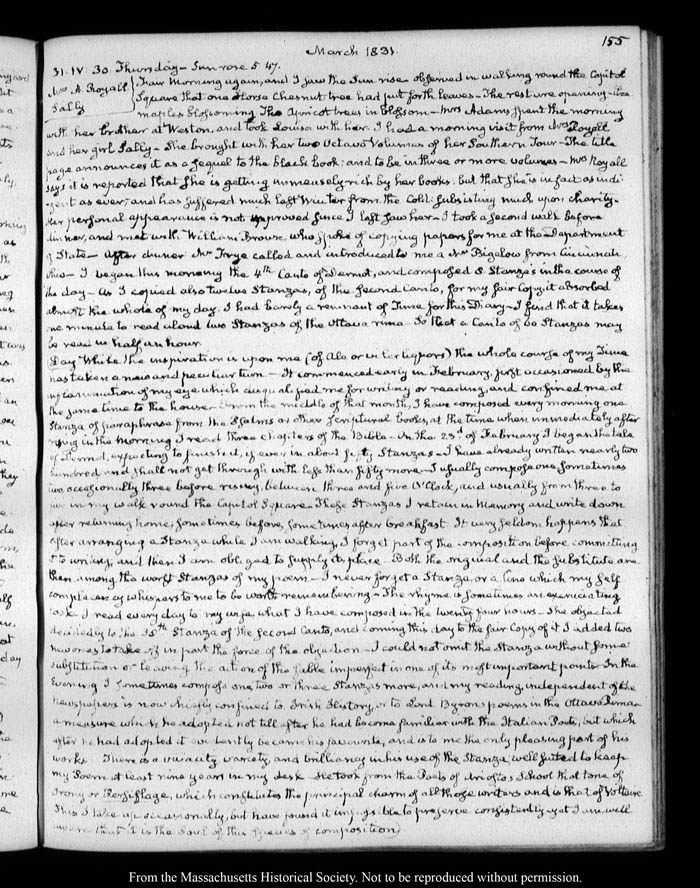 March 1831.
155
31. IV: 30. Thursday — Sun rose 5. 47.
Mrs A. Royall
Sally
Fair Morning again, and I saw the Sun rise observed in walking round the Capitol
Square that one Horse Chesnut tree had put forth leaves — The rest are opening — the
maples blossoming The Apricot trees in blossom — Mrs Adams spent the morning
with her brother at Weston, and took Louisa with her. I had a morning visit from Mrs Royall
and her girl Sally — She brought with her two Octavo Volumes of her Southern Tour — The title
page announces it as a sequel to the black book: and to be in three or more volumes — Mrs Royall
says it is reported that she is getting immensely rich by her books, but that she is in fact as indi-
gent as ever, and has suffered much last Winter from the Cold: subsisting much upon charity.
Her personal appearance is not improved since I last saw her — I took a second walk before
dinner, and met with William Browne who spoke of copying papers for me at the Department
of State — After dinner Mr Frye called and introduced to me a Mr Bigelow from Cincinnati,
Ohio — I began this morning the 4th Canto of Dermot, and composed 8 Stanzas in the course of
the day — As I copied also twelve Stanzas, of the second Canto, for my fair Copy it absorbed
almost the whole of my day. I had barely a remnant of Time for this Diary — I find that it takes
one minute to read aloud two Stanzas of the Ottava rima — So that a Canto of 60 Stanzas may
be read in half an hour.
Day While the inspiration is upon me (of Ale or vi ler liquors) the whole course of my Time
has taken a new and peculiar turn — It commenced early in February, first occasioned by the
inflammation of my eye which disqualified me for writing or reading, and confined me at
the same time to the house — From the middle of that month, I have composed every morning one
Stanza of paraphrase from the Psalms or other Scriptural books, at the time when immediately after
rising in the morning I read three chapters of the Bible — On the 23d of February I began the tale
of Dermot, expecting to finish it, if ever in about fifty Stanzas — I have already written nearly two
hundred and shall not get through with less than fifty more — I usually compose one, sometimes
two, occasionally three before rising, between three and five O'Clock, and usually from three to
five in my walk round the Capitol Square. These Stanzas I retain in Memory and write down
after returning home, sometimes before, sometimes after breakfast. It very seldom happens that
after arranging a Stanza while I am walking, I forget part of the composition before committing
it to writing, and then I am obliged to supply its place — Both the original and the substitute are
then among the worst Stanzas of my poem — I never forget a Stanza, or a line which my self
complacency whispers to me to be worth remembering — The rhyme is sometimes an excruciating
task. I read every day to my wife, what I have composed in the twenty four hours — She objected
decidedly to the 35th Stanza of the second Canto, and coming this day to the fair Copy of it I added two
new ones to take off in part the force of the objection — I could not omit the Stanza without some
substitution or leaving the action of the fable imperfect in one of its most important points — In the
Evening I sometimes compose one, two or three Stanzas more, and my reading, independent of the
newspapers is now chiefly confined to Irish History, or to Lord Byron's poems in the Ottava Rima
a measure which he adopted not till after he had become familiar with the Italian Poets, but which
after he had adopted it evidently became his favourite, and is to me the only pleasing part of his
works. There is a vivacity, variety, and brilliancy in his use of the Stanza well suited to keep
my Poem at least nine years in my desk. He took from the Poets of Ariosto's School that tone of
Irony or Persiflage, which constitutes the principal charm of all those writers and is that of Voltaire
This I take up occasionally, but have found it impossible to preserve consistently yet I am well
aware that it is the Soul of this species of composition
From the Massachusetts Historical Society. Not to be reproduced without permission.